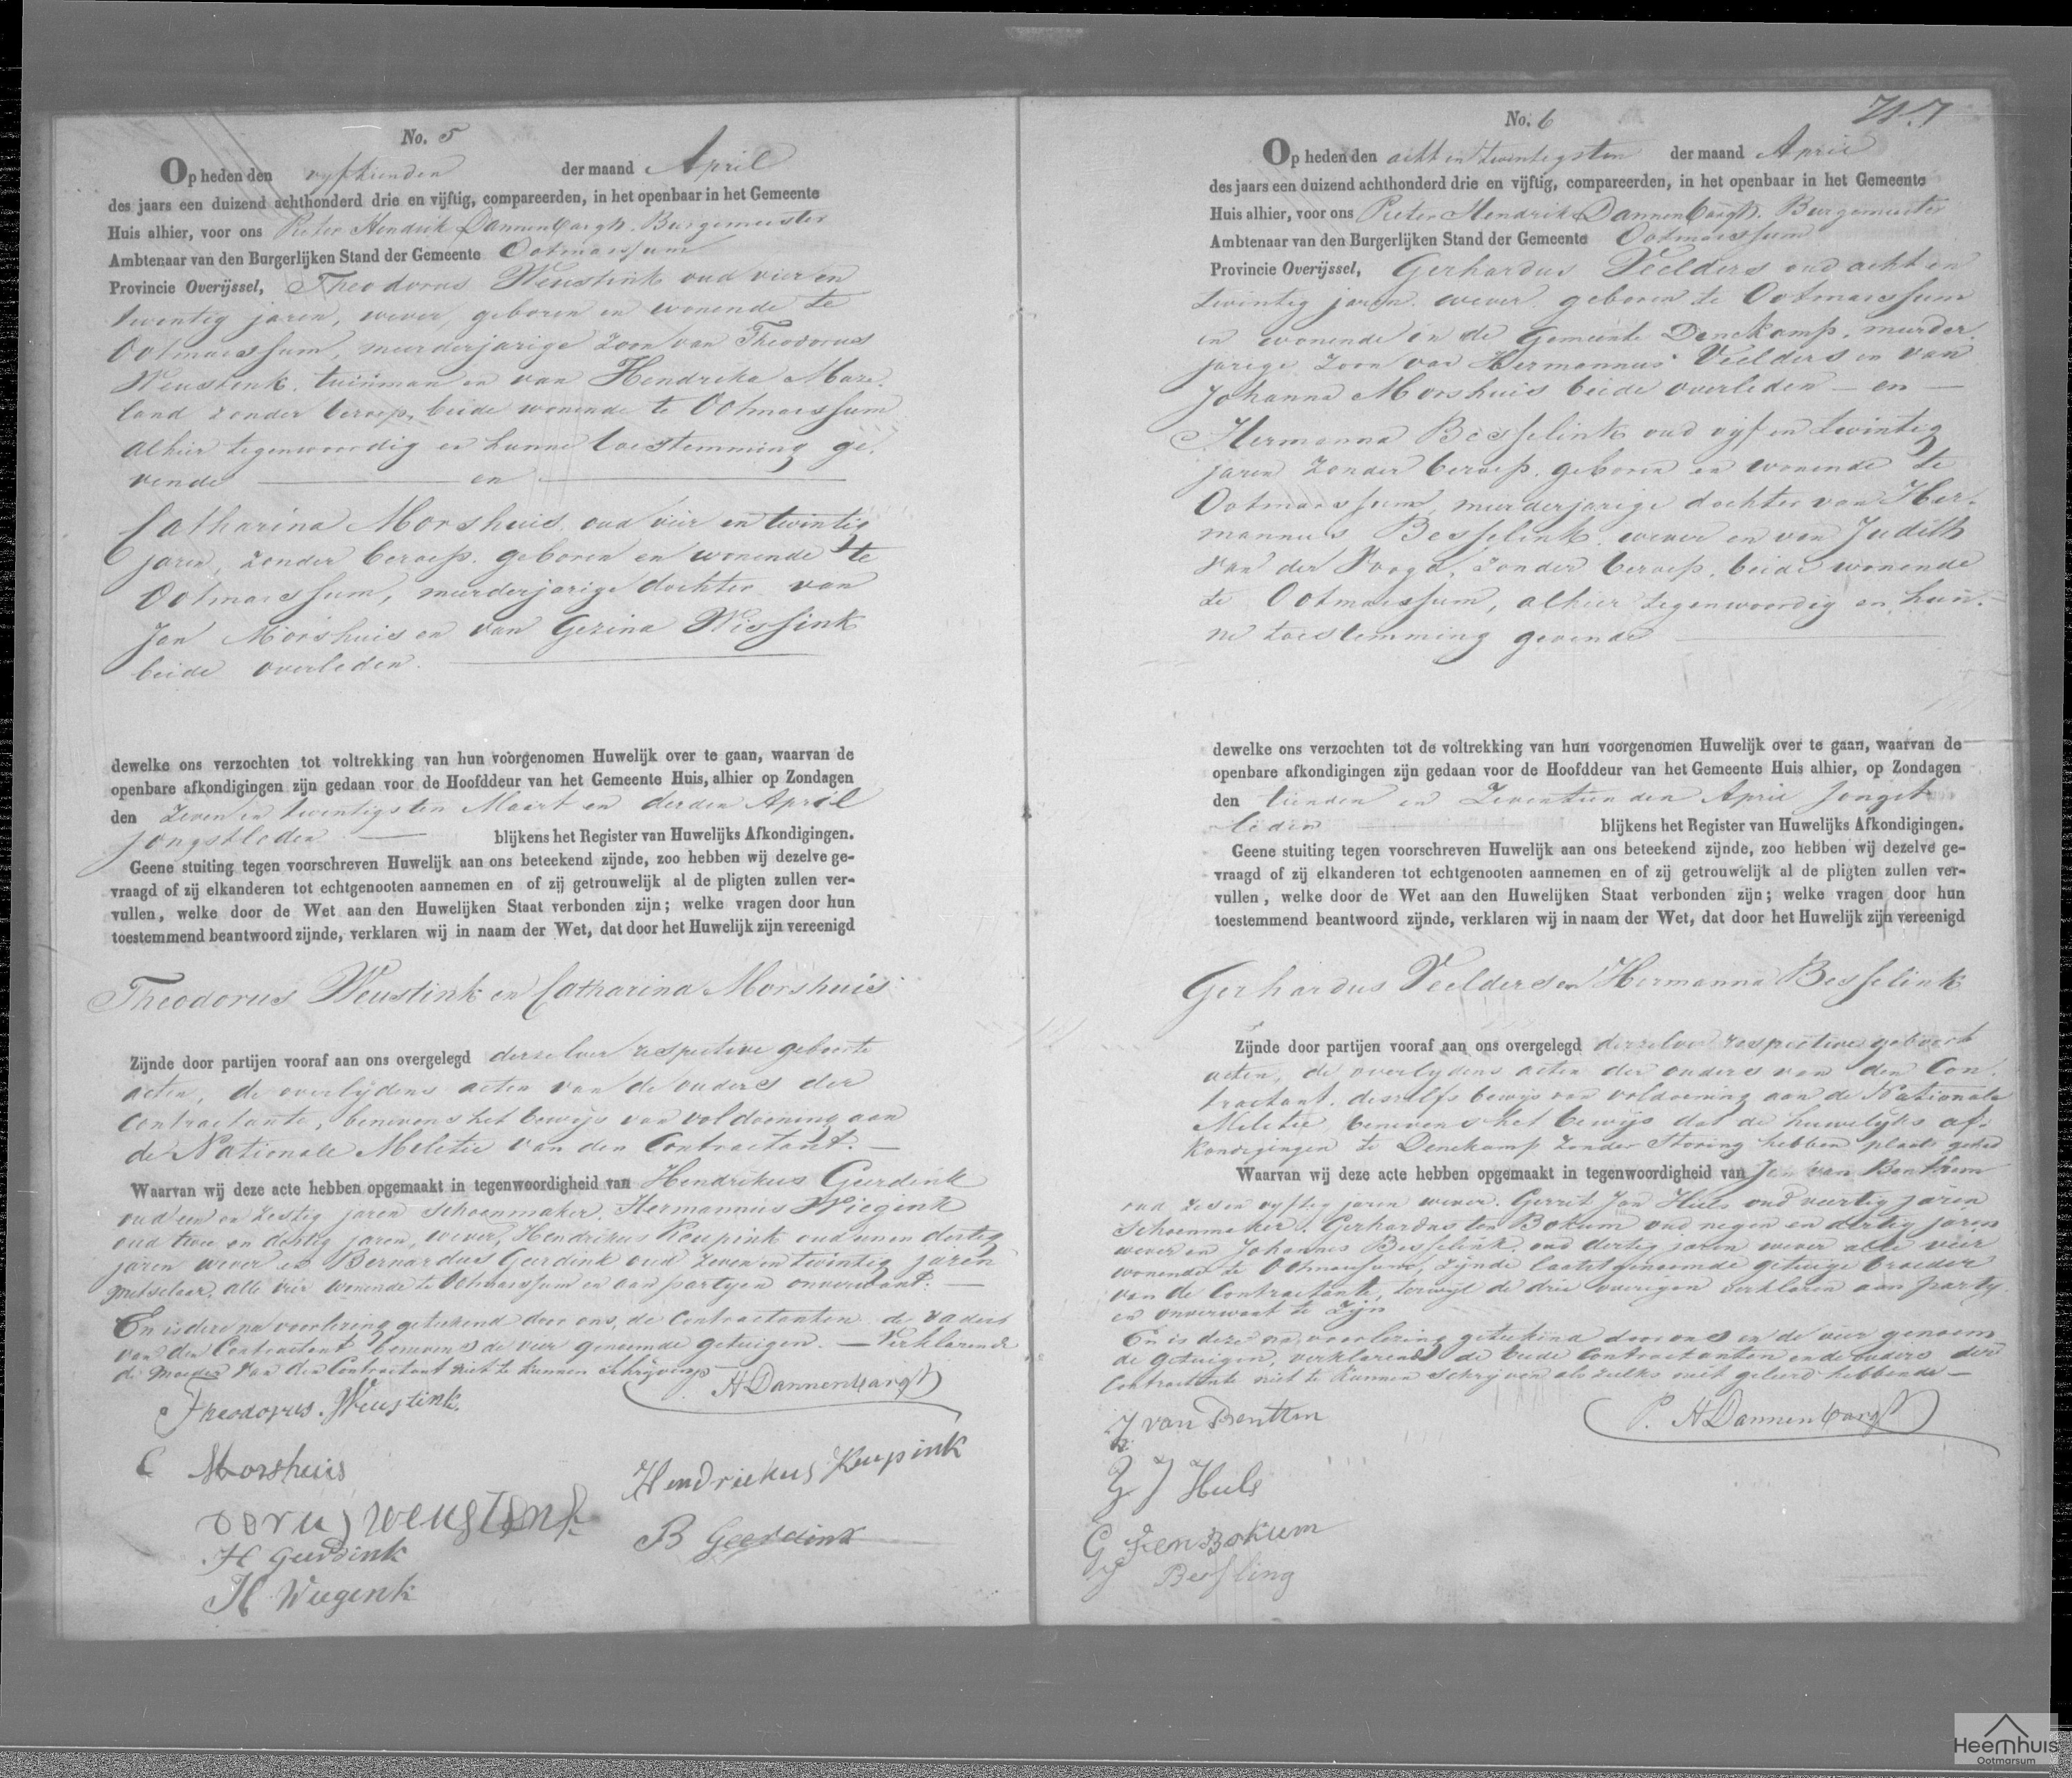 No. 5
Op heden den vyftienden der maand April
des jaars een duizend achthonderd drie en vijftig, compareerden, in het openbaar in het Gemeente
Huis alhier, voor ons Pieter Hendrik Dannenbargh, Burgemeester
Ambtenaar van den Burgerlijken Stand der Gemeente Ootmarssum
Provincie Overijssel, Theodorus Weustink oud vier en
twintig jaren, wever, geboren en wonende te
Ootmarssum, meerderjarige zoon van Theodorus
Weustink, tuinman en van Hendrika Maze-
land zonder beroep, beide wonende te Ootmarssum
alhier tegenwoordig en hunne toestemming ge-
vende — en —
Catharina Morshuis, oud vier en twintig
jaren, zonder beroep, geboren en wonende te
Ootmarssum, meerderjarige dochter van
Jan Morshuis en van Gezina Wissink
beide overleden. —
dewelke ons verzochten tot voltrekking van hun voorgenomen Huwelijk over te gaan, waarvan de
openbare afkondigingen zijn gedaan voor de Hoofddeur van het Gemeente Huis, alhier op Zondagen
den zeven en twintigsten Maart en derden April
jongstleden — blijkens het Register van Huwelijks Afkondigingen.
Geene stuiting tegen voorschreven Huwelijk aan ons beteekend zijnde, zoo hebben wij dezelve ge-
vraagd of zij elkanderen tot echtgenooten aannemen en of zij getrouwelijk al de pligten zullen ver-
vullen, welke door de Wet aan den Huwelijken Staat verbonden zijn; welke vragen door hun
toestemmend beantwoord zijnde, verklaren wij in naam der Wet, dat door het Huwelijk zijn vereenigd
Theodorus Weustink en Catharina Morshuis
Zijnde door partijen vooraf aan ons overgelegd derzelver respective geboorte
acten, de overlydens acten van de ouders der
Contractante, benevens het bewys van voldoening aan
de Nationale Militie van den Contractant. —
Waarvan wij deze acte hebben opgemaakt in tegenwoordigheid van Hendrikus Geerdink
oud een en zestig jaren Schoenmaker, Hermannus Wiegink
oud twee en dertig jaren, wever, Hendrikus Keupink oud een en dertig
jaren wever en Bernardus Geerdink oud zeven en twintig jaren
metselaar, alle vier wonende te Ootmarssum en aan partyen onverwant. —
En is deze na voorlezing geteekend door ons, de Contractanten, de vader
van den Contractant benevens de vier genoemde getuigen. — Verklarende
de moeder van den Contractant niet te kunnen schryven
Theodorus. Weustink. HDannenbargh
C Morshuis Hendriekus Keupink
Dorus Weustink
H Geerdink B Geerdink
H Wiegenk
No. 6
Op heden den acht en twintigsten der maand April
des jaars een duizend achthonderd drie en vijftig, compareerden, in het openbaar in het Gemeente
Huis alhier, voor ons Pieter Hendrik Dannenbargh, Burgemeester
Ambtenaar van den Burgerlijken Stand der Gemeente Ootmarssum
Provincie Overijssel, Gerhardus Veelders oud acht en
twintig jaren, wever, geboren te Ootmarssum
en wonende in de Gemeente Denekamp, meerder
jarige zoon van Hermannus Veelders en van
Johanna Morshuis beide overleden — en —
Hermanna Besselink oud vyf en twintig
jaren zonder beroep, geboren en wonende te
Ootmarssum, meerderjarige dochter van Her-
mannus Besselink, wever en van Judith
van der, zonder beroep, beide wonende
te Ootmarssum, alhier tegenwoordig en hun-
ne toestemming gevende —
dewelke ons verzochten tot de voltrekking van hun voorgenomen Huwelijk over te gaan, waarvan de
openbare afkondigingen zijn gedaan voor de Hoofddeur van het Gemeente Huis alhier, op Zondagen
den tienden en zeventienden April jongst
leden — blijkens het Register van Huwelijks Afkondigingen.
Geene stuiting tegen voorschreven Huwelijk aan ons beteekend zijnde, zoo hebben wij dezelve ge-
vraagd of zij elkanderen tot echtgenooten aannemen en of zij getrouwelijk al de pligten zullen ver-
vullen, welke door de Wet aan den Huwelijken Staat verbonden zijn; welke vragen door hun
toestemmend beantwoord zijnde, verklaren wij in naam der Wet, dat door het Huwelijk zijn vereenigd
Gerhardus Veelders en Hermanna Besselink
Zijnde door partijen vooraf aan ons overgelegd derzelver respective geboort
acten, de overlydens acten der ouders van den Con-
tractant, deszelfs bewys van voldoening aan de Nationale
Militie, benevens het bewys dat de huwelyks af-
kondigingen te Denekamp zonder storing hebben plaats gehad
Waarvan wij deze acte hebben opgemaakt in tegenwoordigheid van Jan van Benthem
oud zes en vyftig jaren wever, Gerrit Jan Huls oud veertig jaren
Schoenmaker, Gerhardus ten Bokum oud negen en dertig jaren
wever en Johannes Besselink, oud dertig jaren wever alle vier
wonende te Ootmarssum, zynde laatstgenoemde getuige broeder
van de Contractante, terwyl de drie overigen verklaren aan party-
en onverwant te zyn
En is deze na voorlezing geteekend door ons en de vier genoem
de getuigen, verklarende de beide Contractanten en de ouders der
Contractante niet te kunnen schryven als zulks niet geleerd hebbende —
J van Bentem P. HDannenbargh
G J Huls
G Ten Bokum
Besling
Heemhuis
Ootmarsum